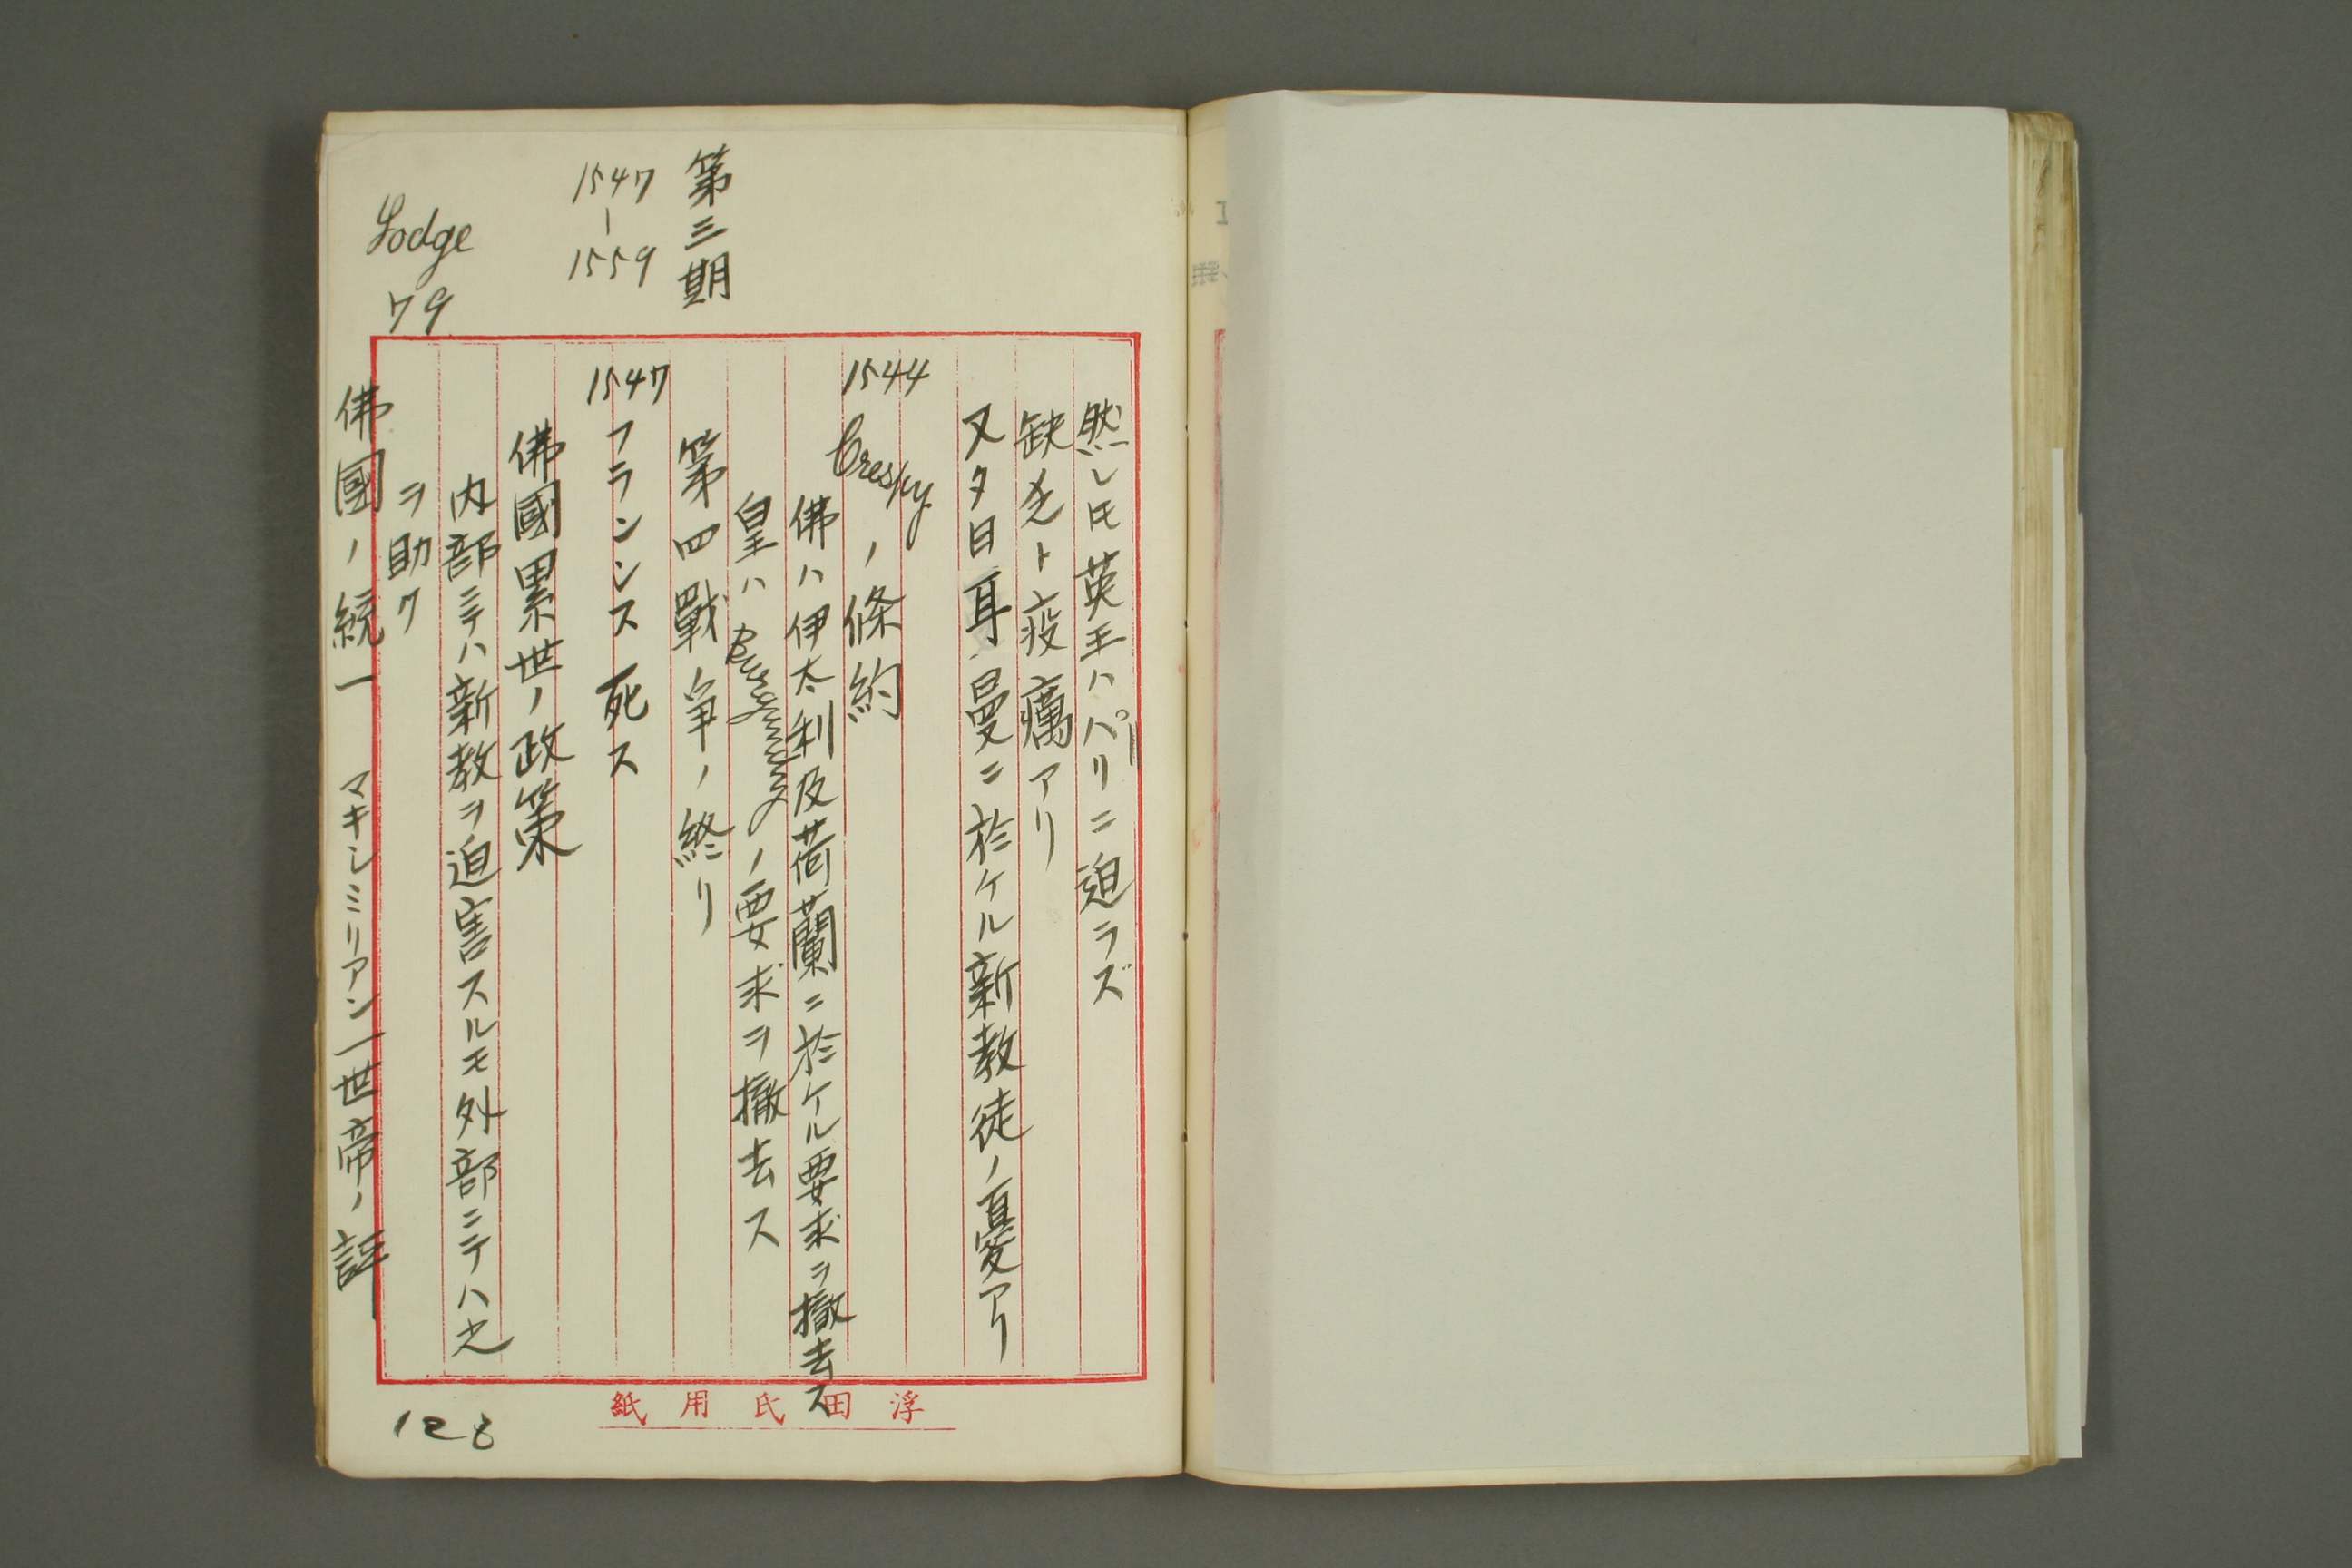 然レ𪜈英王ハパリニ迫ラズ
缺乏ト疫癘アリ
又タ日耳曼ニ於ケル新教徒ノ憂アリ
1544
Crespyノ條約
佛ハ伊太利及荷蘭ニ於ケル要求ヲ撤去ス
皇ハBurgundyノ要求ヲ撤去ス
第四戰争ノ終リ
第三期
1547
|
1559
1547
フランンス死ス
佛國累世ノ政策
内部ニテハ新教ヲ迫害スルモ外部ニテハ之
ヲ助ク
Lodge
79
佛國ノ統一 マキシミリアン一世帝ノ証
浮田氏用紙
128